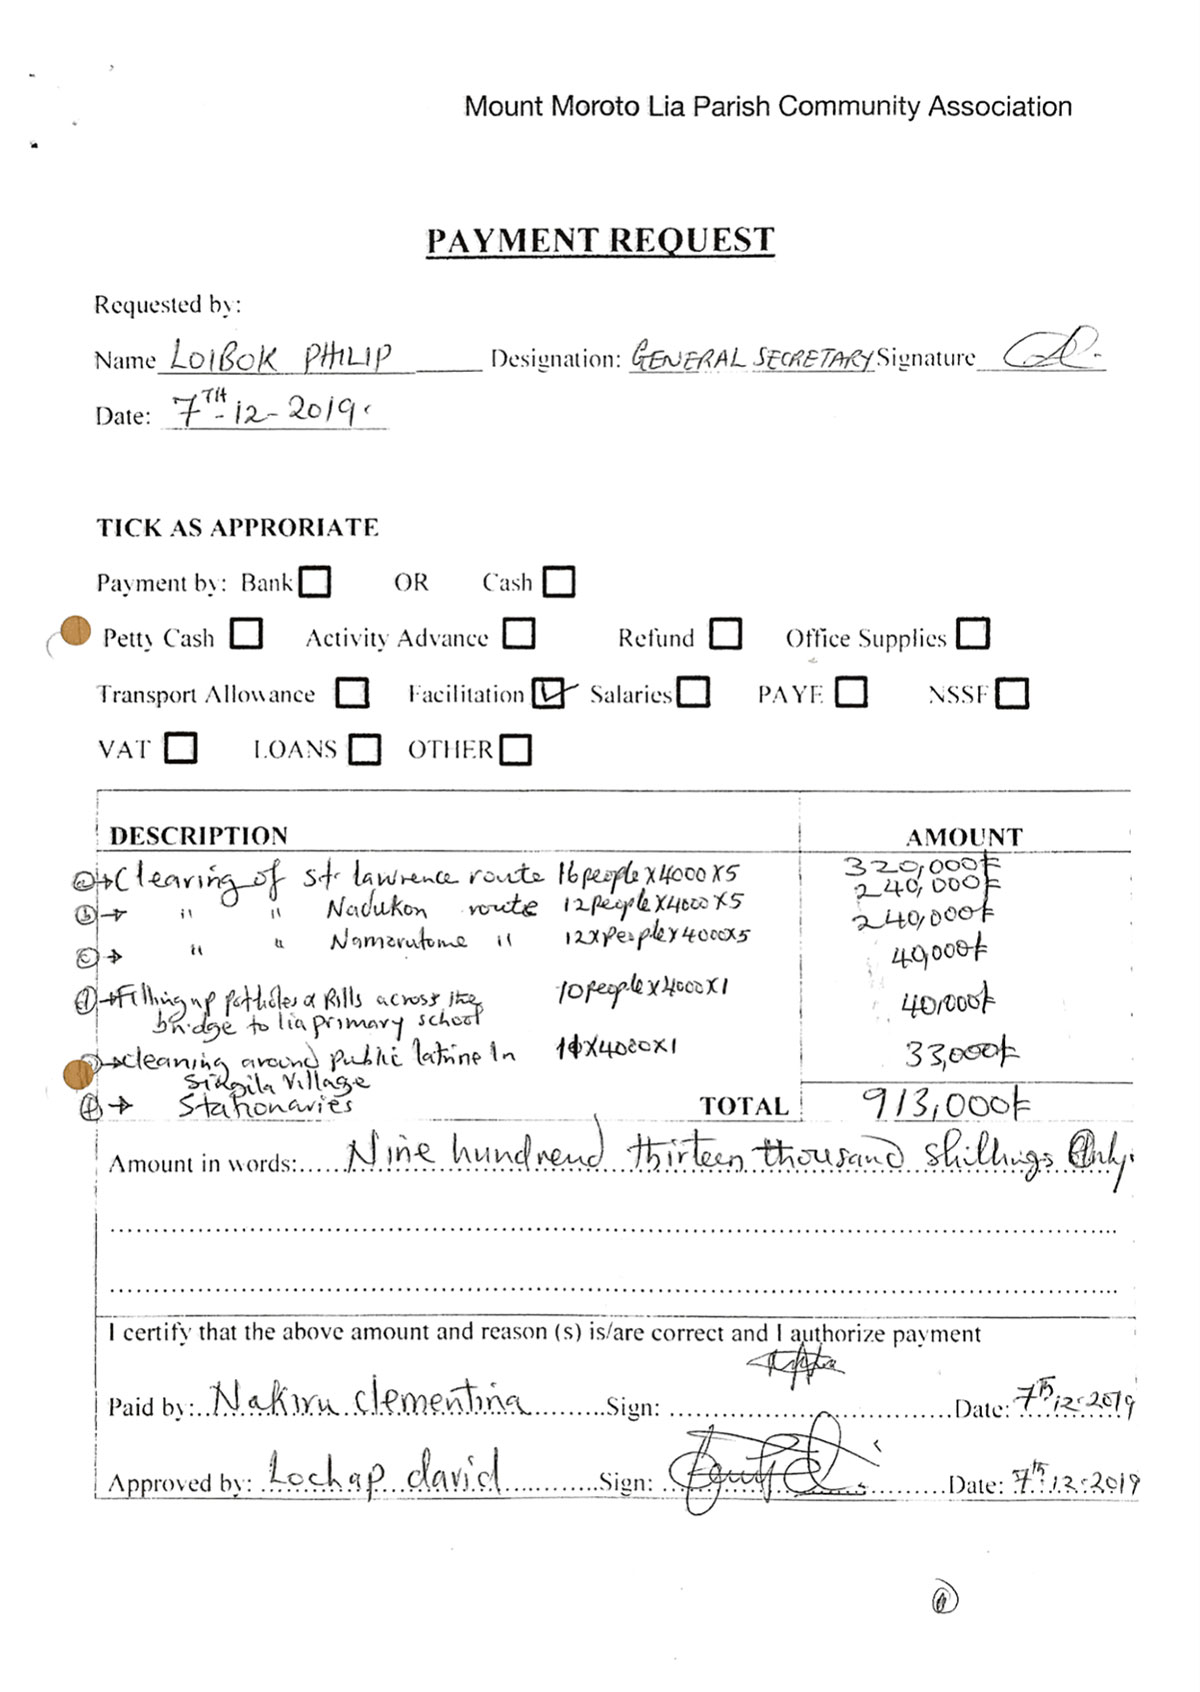 Mount Moroto Lia Parish Community Association
PAYMENT REQUEST
Requested by:
Name LOIBOK PHILIP Designation: GENERAL SECRETARY Signature
Date: 7TH-12-2019.
TICK AS APPRORIATE
Payment by: Bank OR Cash
Petty Cash Activity Advance Refund Office Supplies
Transport Allowance Facilitation Salaries PAYE NSSF
VAT LOANS OTHER
DESCRIPTION AMOUNT
a→Clearing of st. lawrence route 16people x 4000 x 5 320,000/=
b→ " " Nadukon route 12people x 4000 x 5 240,000/=
c→ " " Namarutome " 12xpeople x 4000x5 240,000/=
40,000/=
d→Filling up potholes & Rills across the 10people x 4000 x 1 40,000/=
bridge to lia primary school
→cleaning around public latrine In 10x4000x1 33,000/=
Singila Village
→ Stationaries TOTAL 913,000/=
Amount in words: Nine hundrend thirteen thousand shillings Only.
I certify that the above amount and reason (s) is/are correct and I authorize payment
Paid by: Nakiru clementina Sign: Date: 7th 12-2019
Approved by: Lochap david Sign: Date: 7th.12.2019